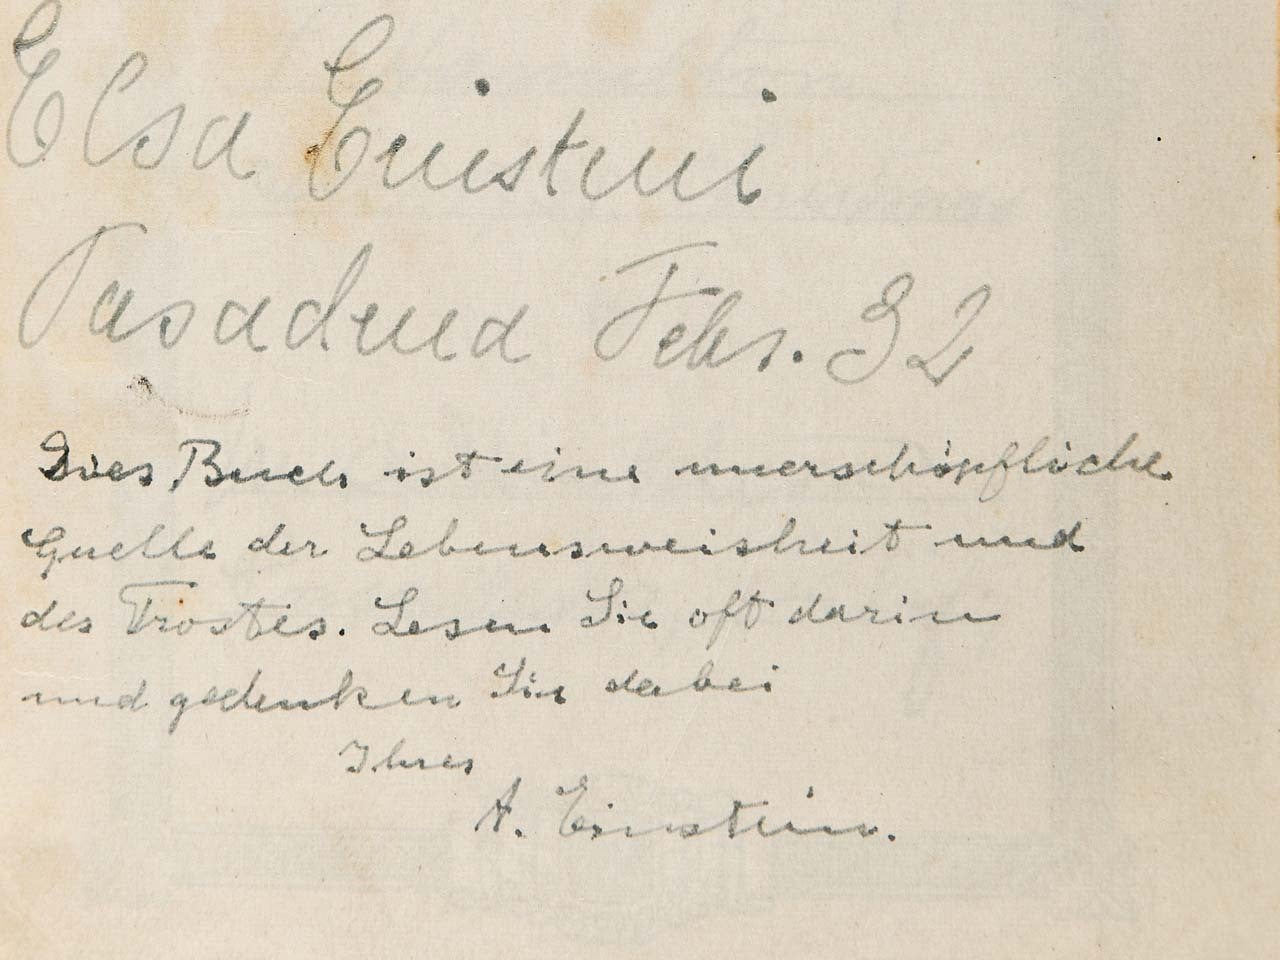 Elsa Einstein
Pasadena Febr. 32
Dies Buch ist eine unerschöpfliche
Quelle der Lebensweisheit und
des Trostes. Lesen Sie oft darin
und gedenken Sie dabei
Ihres
A. Einstein.